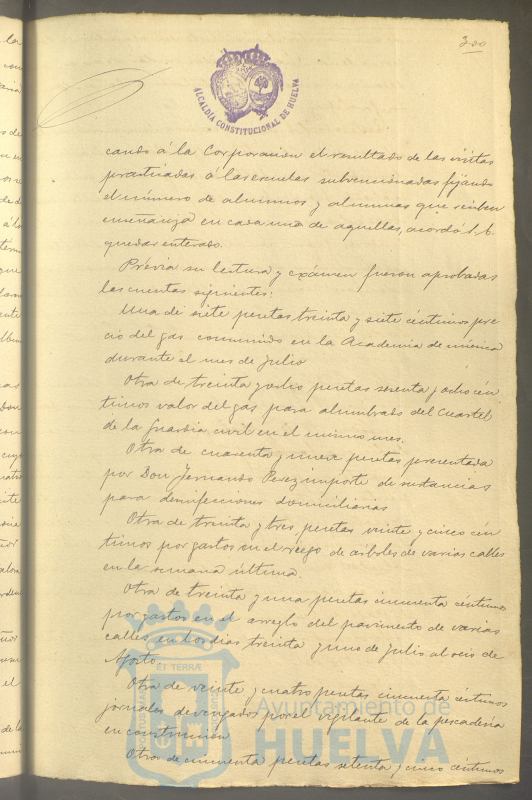 300
ALCALDÍA CONSTITUCIONAL DE HUELVA
cando á la Corporacion el resultado de las visitas
practicadas á las escuelas subvencionadas fijando
el número de alumnos y alumnas que reciben
enseñanza en cada una de aquellas, acordó S. E.
quedar enterado.
Prévia su lectura y exámen fueron aprobadas
las cuentas siguientes:
Una de siete pesetas treinta y siete céntimos pre
cio del gas consumido en la Academia de música
durante el mes de Julio
Otra de treinta y ocho pesetas setenta y ocho cén
timos valor del gas para alumbrado del Cuartel
de la Guardia civil en el mismo mes.
Otra de cuarenta y nueve pesetas presentada
por Don Fernando Perez importe de sustancias
para desinfecciones domiciliarias
Otra de treinta y tres pesetas veinte y cinco cén
timos por gastos en el riego de árboles de varias calles
en la semana última.
Otra de treinta y una pesetas cincuenta céntimos
por gastos en el arreglo del pavimento de varias
calles en los dias treinta y uno de Julio al seis de
Agosto
Otra de veinte y cuatro pesetas cincuenta céntimos
jornales devengados por el vigilante de la pescadería
en construccion
Otra de cincuenta pesetas setenta y cinco céntimos
ET TERRÆ
Ayuntamiento de
HUELVA